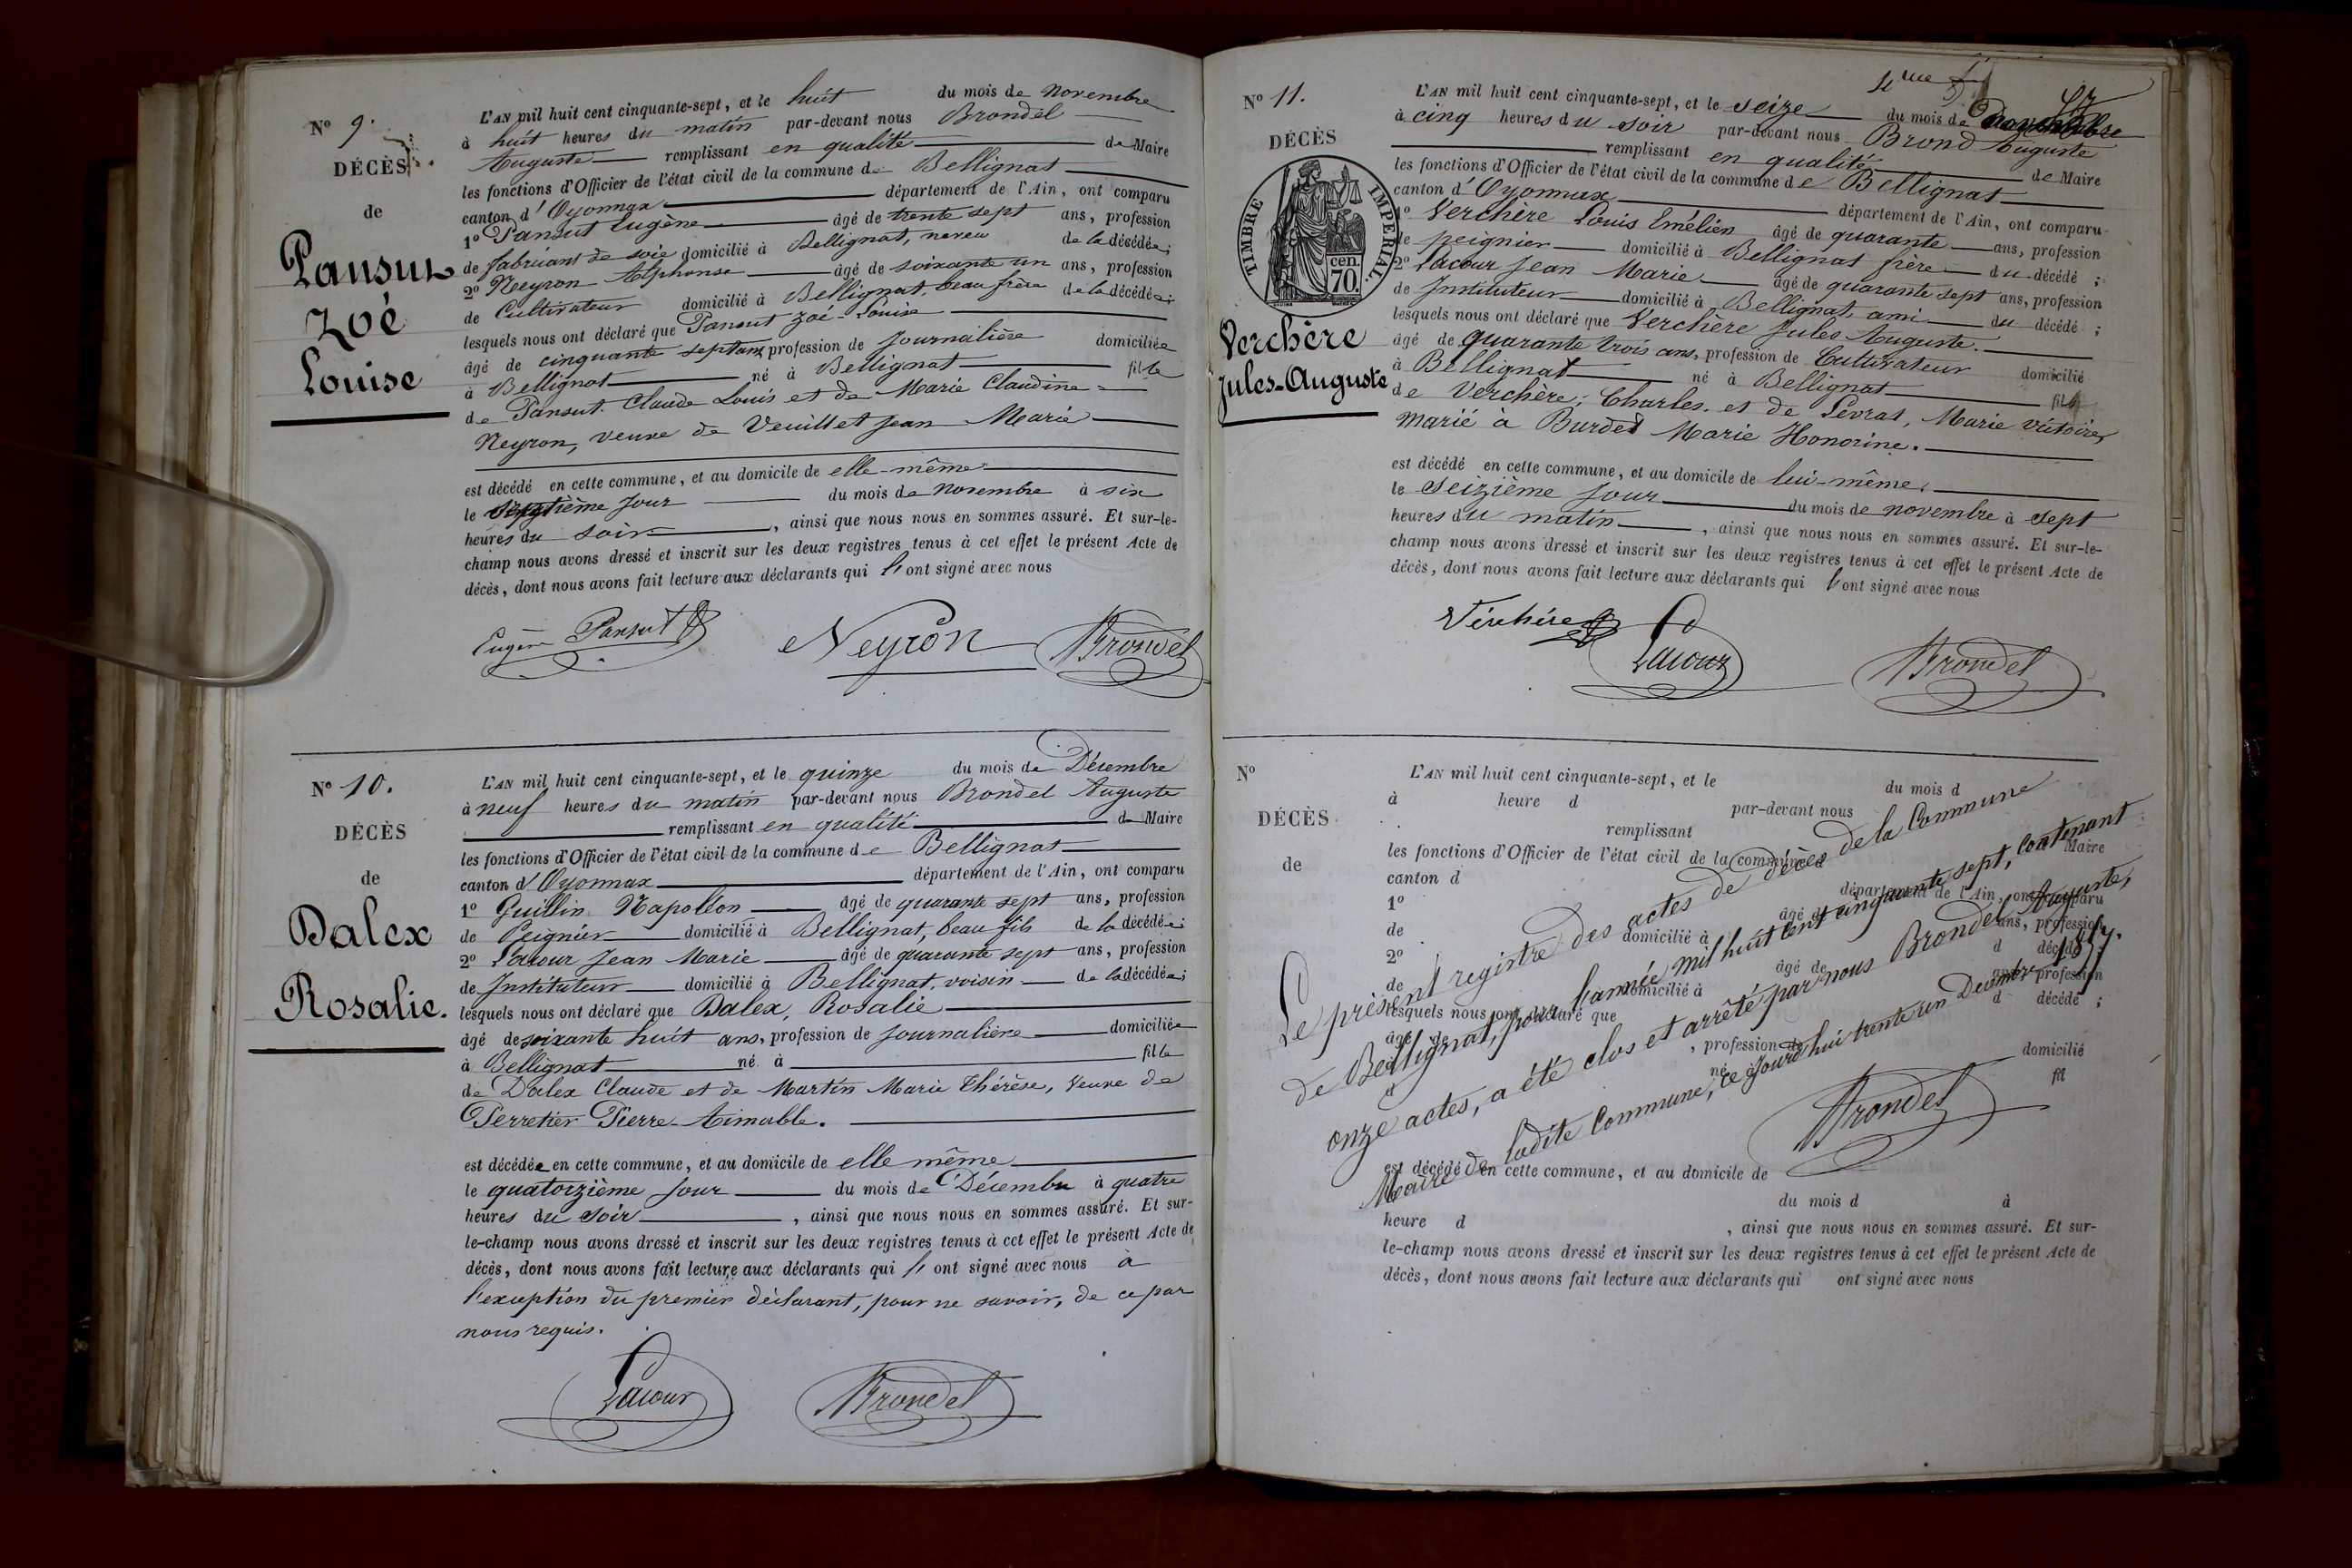 N° 9.
DÉCÈS
de
Pansut
Zoé
Louise
L'AN mil huit cent cinquante-sept, et le huit du mois de novembre
à huit heures du matin par-devant nous Brondel
Auguste remplissant en qualité de Maire
les fonctions d'Officier de l'état civil de la commune de Bellignat
canton d'Oyonnax département de l'Ain, ont comparu
1° Pansut Eugène âgé de trente sept ans, profession
de fabricant de soie domicilié à Bellignat, neveu de la décédée;
2° Neyron Alphonse âgé de soixante un ans, profession
de Cultivateur domicilié à Bellignat, beau frère de la décédée;
lesquels nous ont déclaré que Pansut Zoé-Louise
âgé de cinquante sept ans, profession de Journalière domiciliée
à Bellignat né à Bellignat fille
de Pansut Claude Louis et de Marie Claudine
Neyron, veuve de Veuillet Jean Marie
est décédé en cette commune, et au domicile de elle-même
le septième Jour du mois de novembre à six
heures du soir, ainsi que nous nous en sommes assuré. Et sur-le-
champ nous avons dressé et inscrit sur les deux registres tenus à cet effet le présent Acte de
décès, dont nous avons fait lecture aux déclarants qui l'ont signé avec nous
Eugène Pansut Neyron Brondel
N° 10.
DÉCÈS
de
Dalex
Rosalie.
L'AN mil huit cent cinquante-sept, et le quinze du mois de Décembre
à neuf heures du matin par-devant nous Brondel Auguste
remplissant en qualité de Maire
les fonctions d'Officier de l'état civil de la commune de Bellignat
canton d'Oyonnax département de l'Ain, ont comparu
1° Guillin Napoléon âgé de quarante sept ans, profession
de Peignier domicilié à Bellignat, beau fils de la décédée;
2° Lacour Jean Marie âgé de quarante sept ans, profession
de Instituteur domicilié à Bellignat, voisin de la décédée;
lesquels nous ont déclaré que Dalex, Rosalie
âgé de soixante huit ans, profession de Journalière domiciliée
à Bellignat né à fille
de Dalex Claude et de Martin Marie Thérèse, Veuve de
Perretier Pierre-Aimable.
est décédée en cette commune, et au domicile de elle même
le quatorzième Jour du mois de Décembre à quatre
heures du soir, ainsi que nous nous en sommes assuré. Et sur-
le-champ nous avons dressé et inscrit sur les deux registres tenus à cet effet le présent Acte de
décès, dont nous avons fait lecture aux déclarants qui l'ont signé avec nous à
l'exception du premier déclarant, pour ne savoir, de ce par
nous requis.
Lacour Brondel
N° 11.
DÉCÈS
TIMBRE IMPERIAL.
cen.
70.
Verchère
Jules-Auguste
L'AN mil huit cent cinquante-sept, et le seize du mois de
à cinq heures du soir par-devant nous Brond Auguste
remplissant en qualité de Maire
les fonctions d'Officier de l'état civil de la commune de Bellignat
canton d'Oyonnax département de l'Ain, ont comparu
1° Verchère Louis Emélien âgé de quarante ans, profession
de peignier domicilié à Bellignat frère du décédé;
2° Lacour Jean Marie âgé de quarante sept ans, profession
de Instituteur domicilié à Bellignat, ami du décédé;
lesquels nous ont déclaré que Verchère Jules Auguste.
âgé de quarante trois ans, profession de Cultivateur domicilié
à Bellignat né à Bellignat fils
de Verchère, Charles. et de Levrat, Marie victoire,
marié à Burdet Marie Honorine.
est décédé en cette commune, et au domicile de lui-même.
le Seizième Jour du mois de novembre à sept
heures du matin, ainsi que nous nous en sommes assuré. Et sur-le-
champ nous avons dressé et inscrit sur les deux registres tenus à cet effet le présent Acte de
décès, dont nous avons fait lecture aux déclarants qui l'ont signé avec nous
Verchère Lacour Brondel
N°
DÉCÈS
de
L'AN mil huit cent cinquante-sept, et le du mois d
à heure d par-devant nous
remplissant Maire
les fonctions d'Officier de l'état civil de la commune d
canton d département de l'Ain, ont comparu
1° âgé de ans, profession
de domicilié à d décédé
2° âgé de ans, profession
de domicilié à d décédé;
lesquels nous ont déclaré que
âgé de , profession de domicilié
à né à fil
d
Le présent registre des actes de décès de la Commune
de Bellignat, pour l'année mil huit cent cinquante sept, contenant
onze actes, a été clos et arrêté par nous Brondel Auguste,
Maire de ladite Commune, ce Jourd'hui trente un Décembre 1857.
Brondel
est décédé en cette commune, et au domicile de
du mois d à
heure d , ainsi que nous nous en sommes assuré. Et sur-
le-champ nous avons dressé et inscrit sur les deux registres tenus à cet effet le présent Acte de
décès, dont nous avons fait lecture aux déclarants qui ont signé avec nous